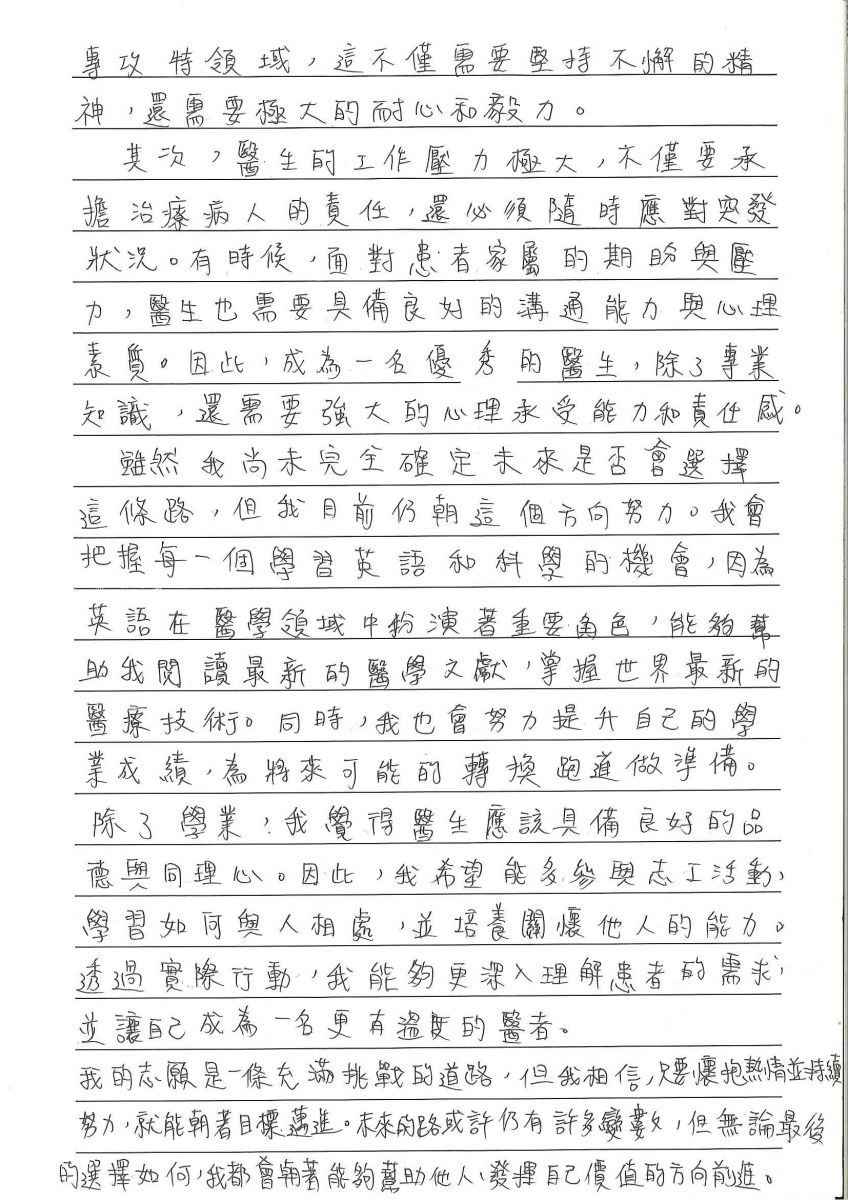 專攻特領域，這不僅需要堅持不懈的精
神，還需要極大的耐心和毅力。
其次，醫生的工作壓力極大，不僅要承
擔治療病人的責任，還必須隨時應對突發
狀況。有時候，面對患者家屬的期盼與壓
力，醫生也需要具備良好的溝通能力與心理
素質。因此，成為一名優秀的醫生，除了專業
知識，還需要強大的心理承受能力和責任感。
雖然我尚未完全確定未來是否會選擇
這條路，但我目前仍朝這個方向努力。我會
把握每一個學習英語和科學的機會，因為
英語在醫學領域中扮演著重要角色，能夠幫
助我閱讀最新的醫學文獻，掌握世界最新的
醫療技術。同時，我也會努力提升自己的學
業成績，為將來可能的轉換跑道做準備。
除了學業，我覺得醫生應該具備良好的品
德與同理心。因此，我希望能多參與志工活動，
學習如何與人相處，並培養關懷他人的能力。
透過實際行動，我能夠更深入理解患者的需求，
並讓自己成為一名更有溫度的醫者。
我的志願是一條充滿挑戰的道路，但我相信，只要懷抱熱情並持續
努力，就能朝著目標邁進。未來的路或許仍有許多變數，但無論最後
的選擇如何，我都會朝著能夠幫助他人、發揮自己價值的方向前進。